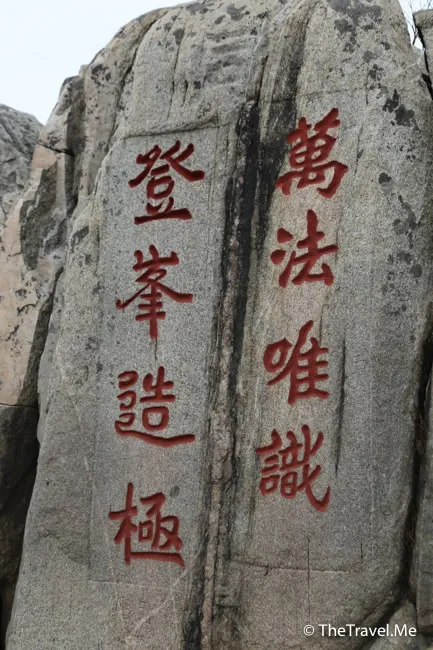 萬法唯識
登峯造極
© TheTravel.Me